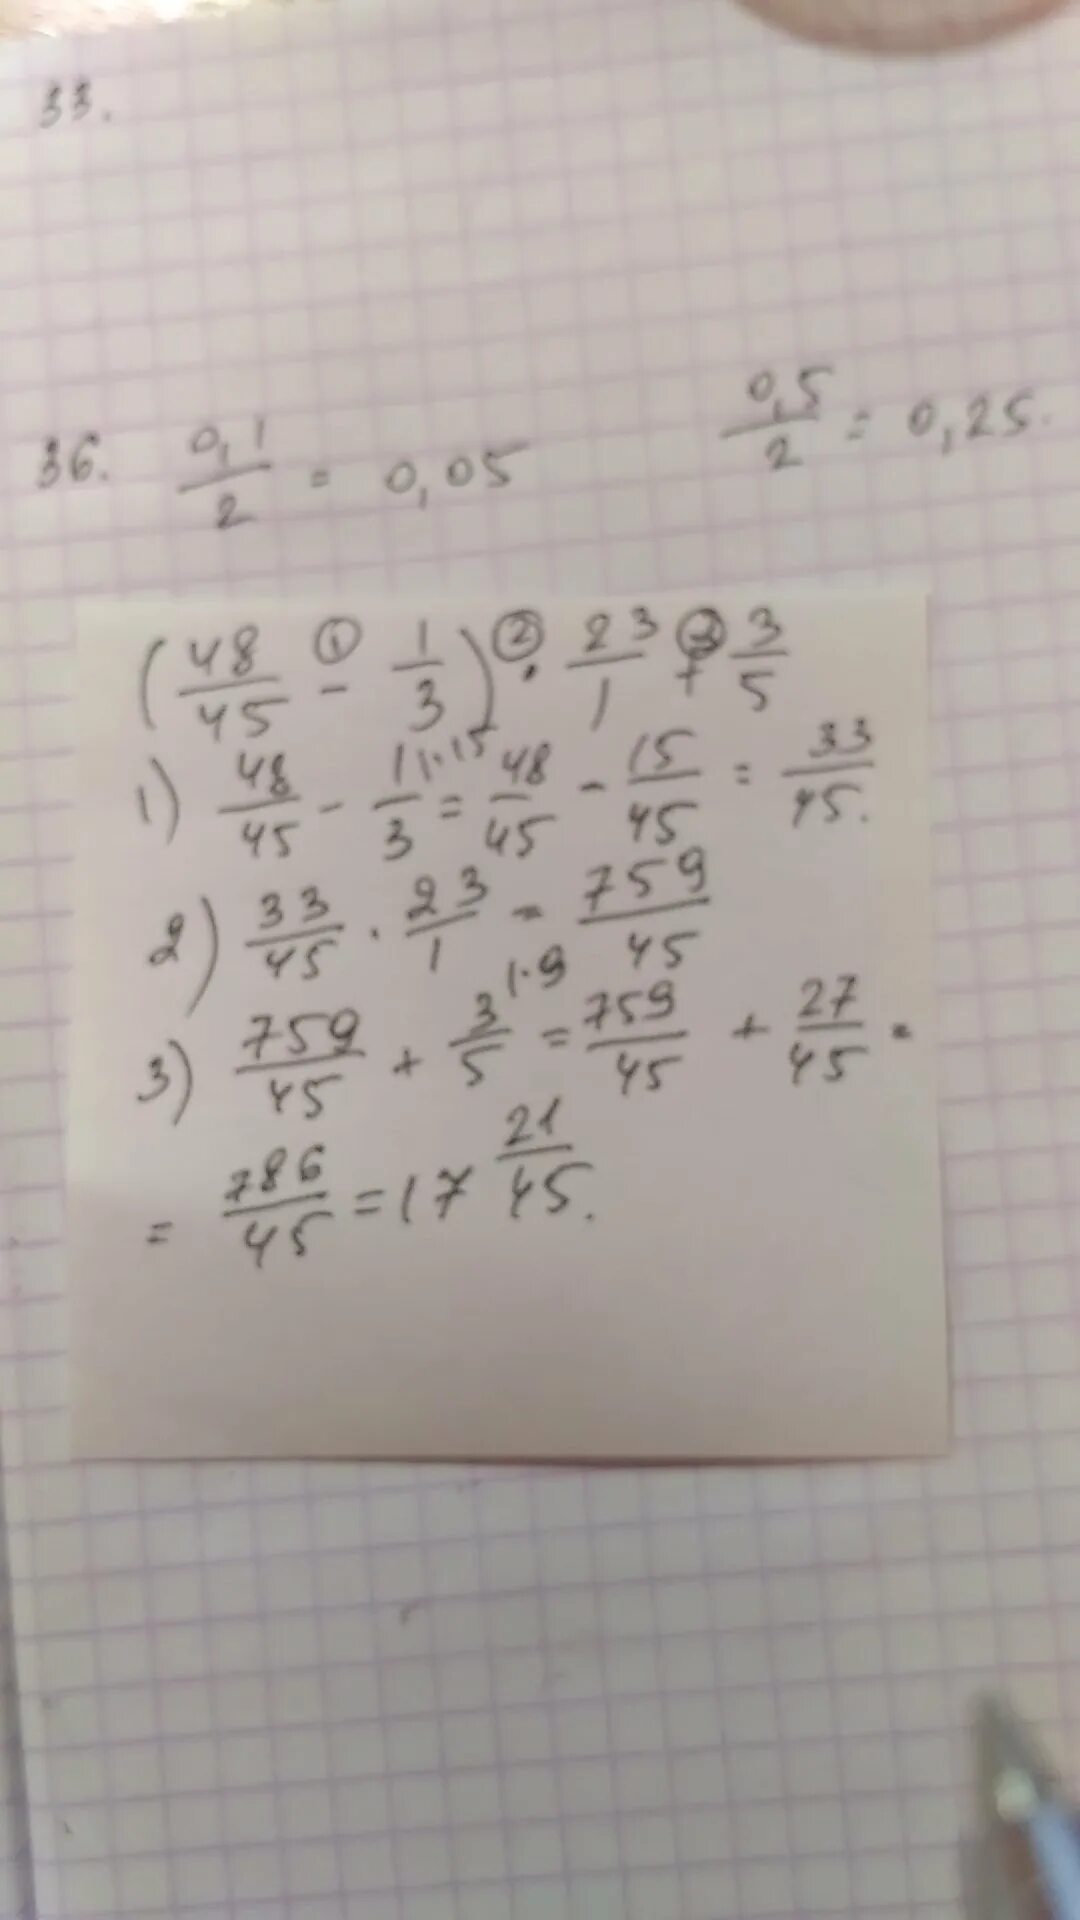 33.
36. 0,1/2 = 0,05 0,5/2 = 0,25.
(48/45 ①- 1/3) ②· 23/1 ③+ 3/5
1) 48/45 - 1/3 |1·15 = 48/45 - 15/45 = 33/45.
2) 33/45 · 23/1 = 759/45
3) 759/45 + 3/5 |1·9 = 759/45 + 27/45 =
= 786/45 = 17 21/45.